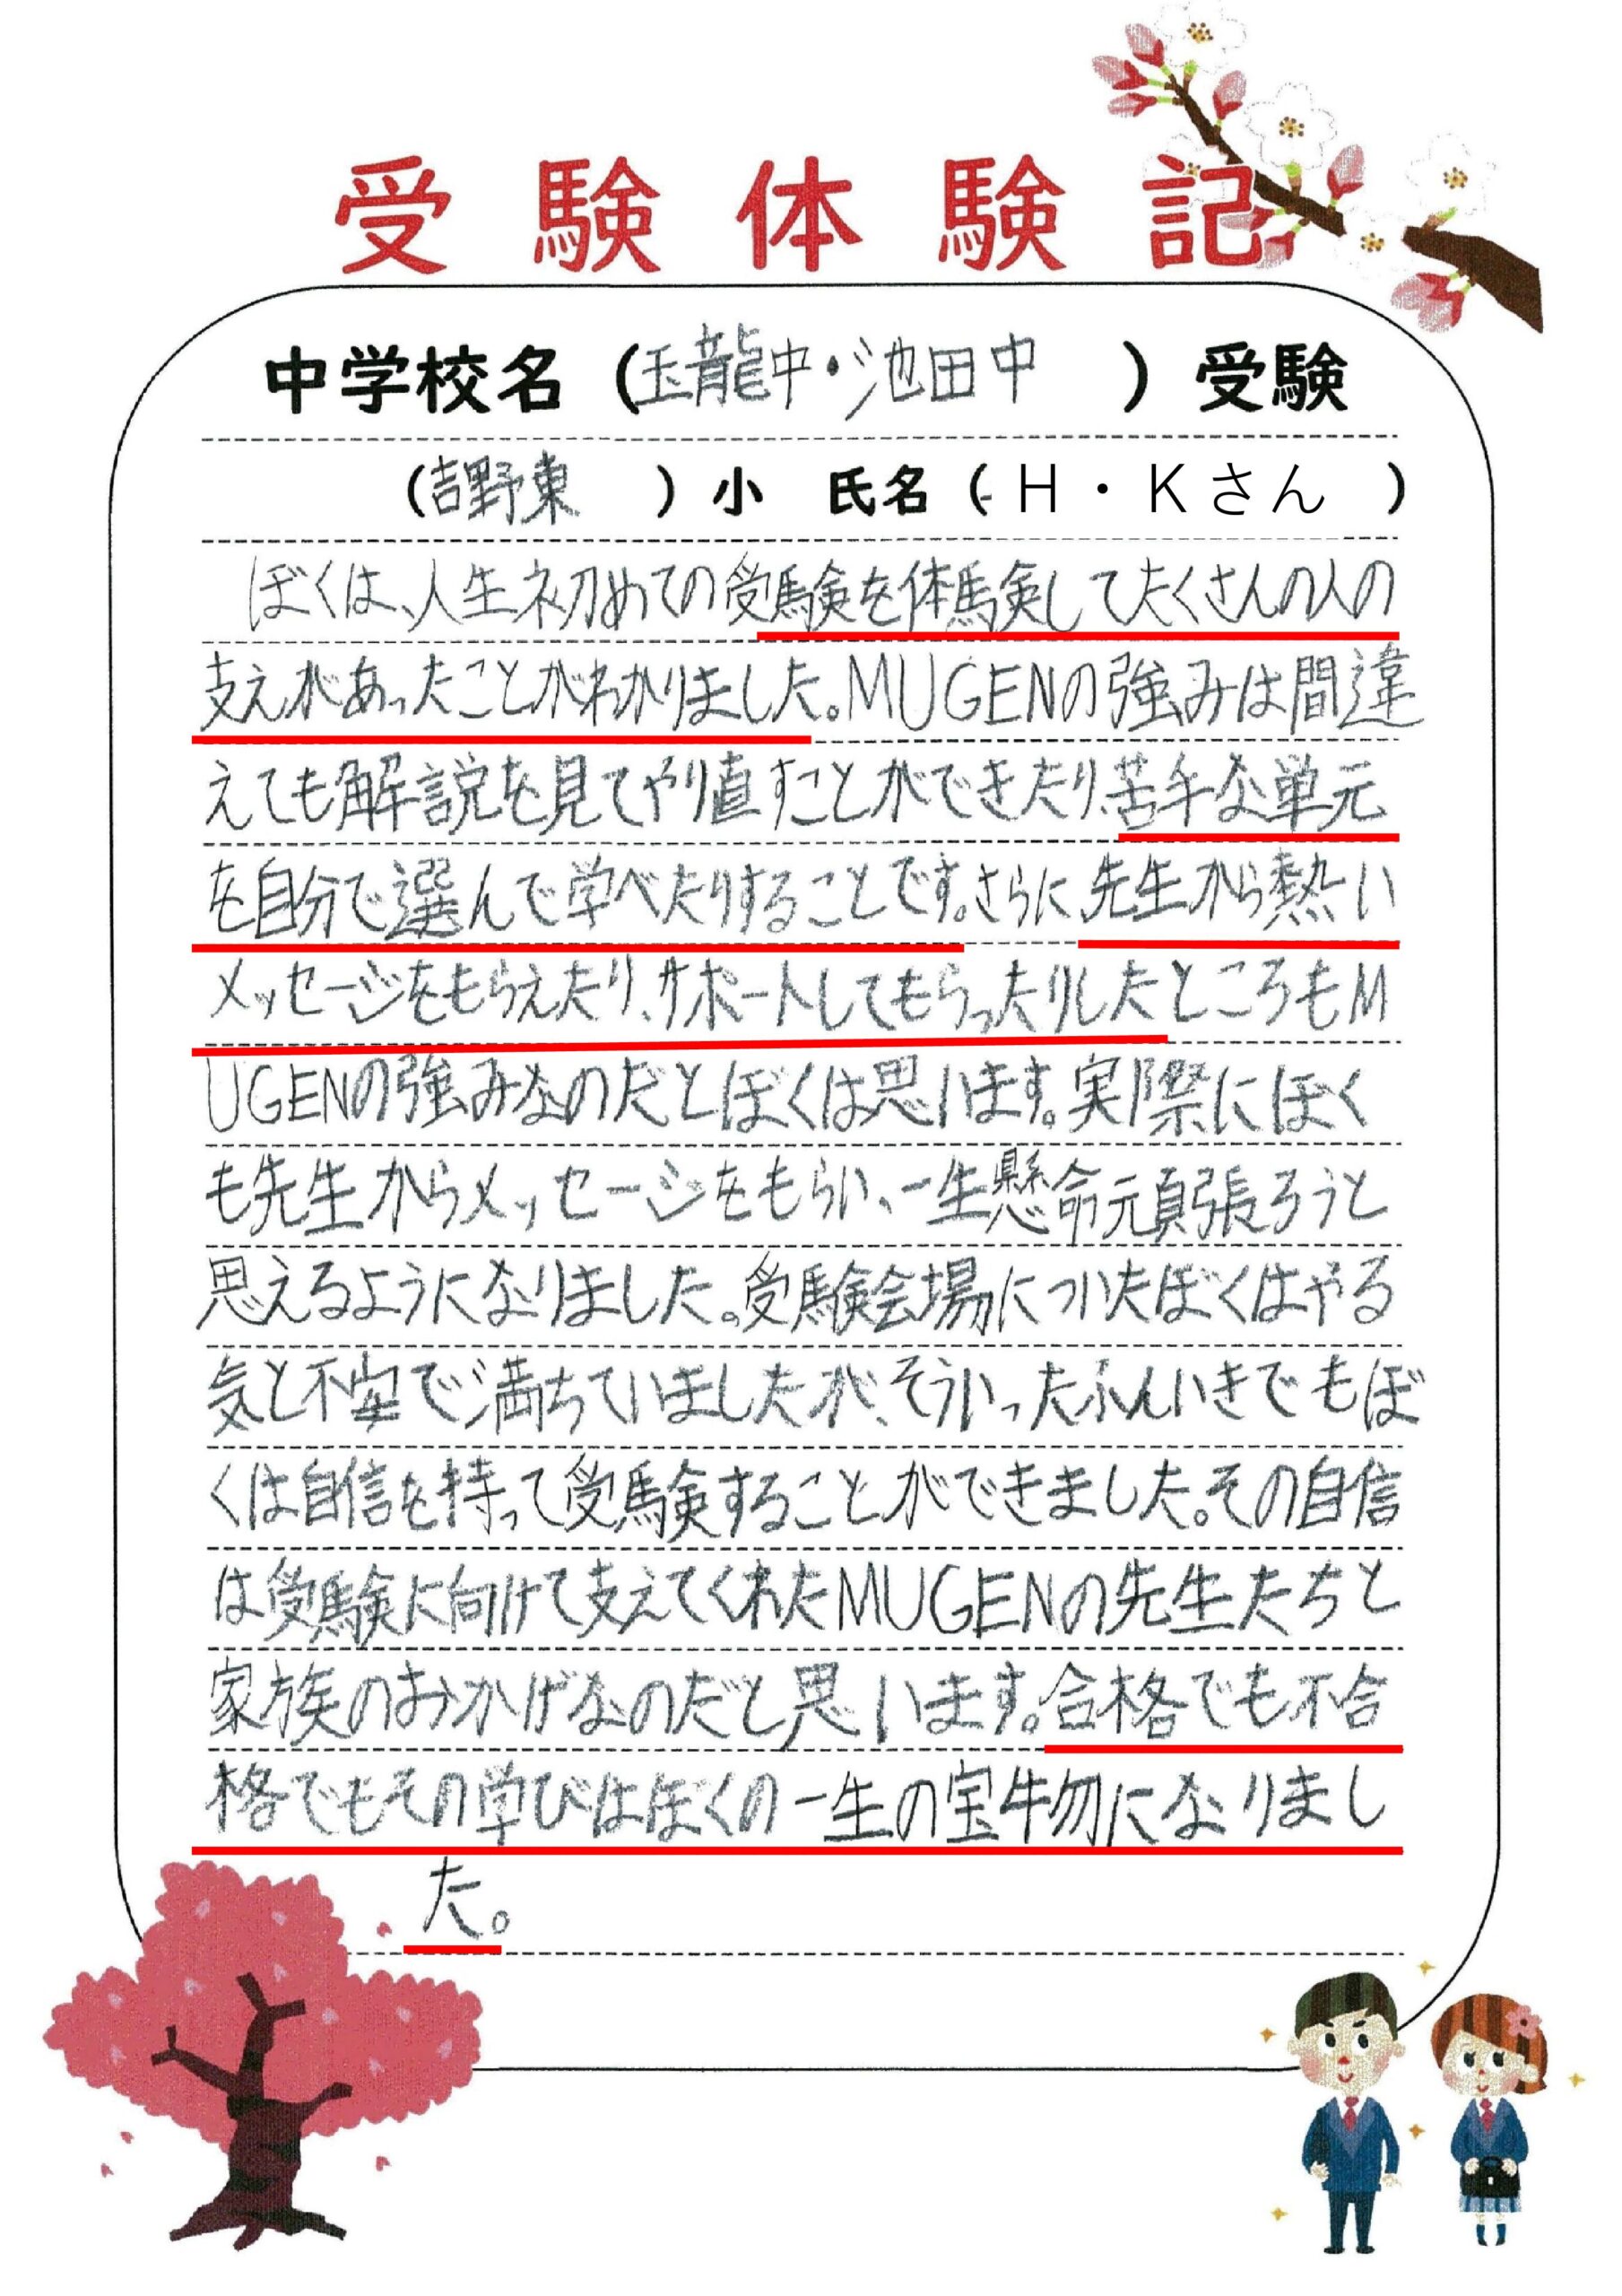 受験体験記
中学校名（玉龍中・池田中　）受験
（吉野東　）小　氏名（H・Kさん　）
ぼくは、人生初めての受験を体験してたくさんの人の
支えがあったことがわかりました。MUGENの強みは間違
えても解説を見てやり直すことができたり、苦手な単元
を自分で選んで学べたりすることです。さらに、先生から熱い
メッセージをもらえたり、サポートしてもらったりしたところもM
UGENの強みなのだとぼくは思います。実際にぼく
も先生からメッセージをもらい、一生懸命元頁張ろうと
思えるようになりました。受験会場についたぼくはやる
気と不安で満ちていましたが、そういったふんいきでもぼ
くは自信を持って受験することができました。その自信
は受験に向けて支えてくれたMUGENの先生たちと
家族のおかげなのだと思います。合格でも不合
格でもその学びはぼくの一生の宝物になりまし
た。